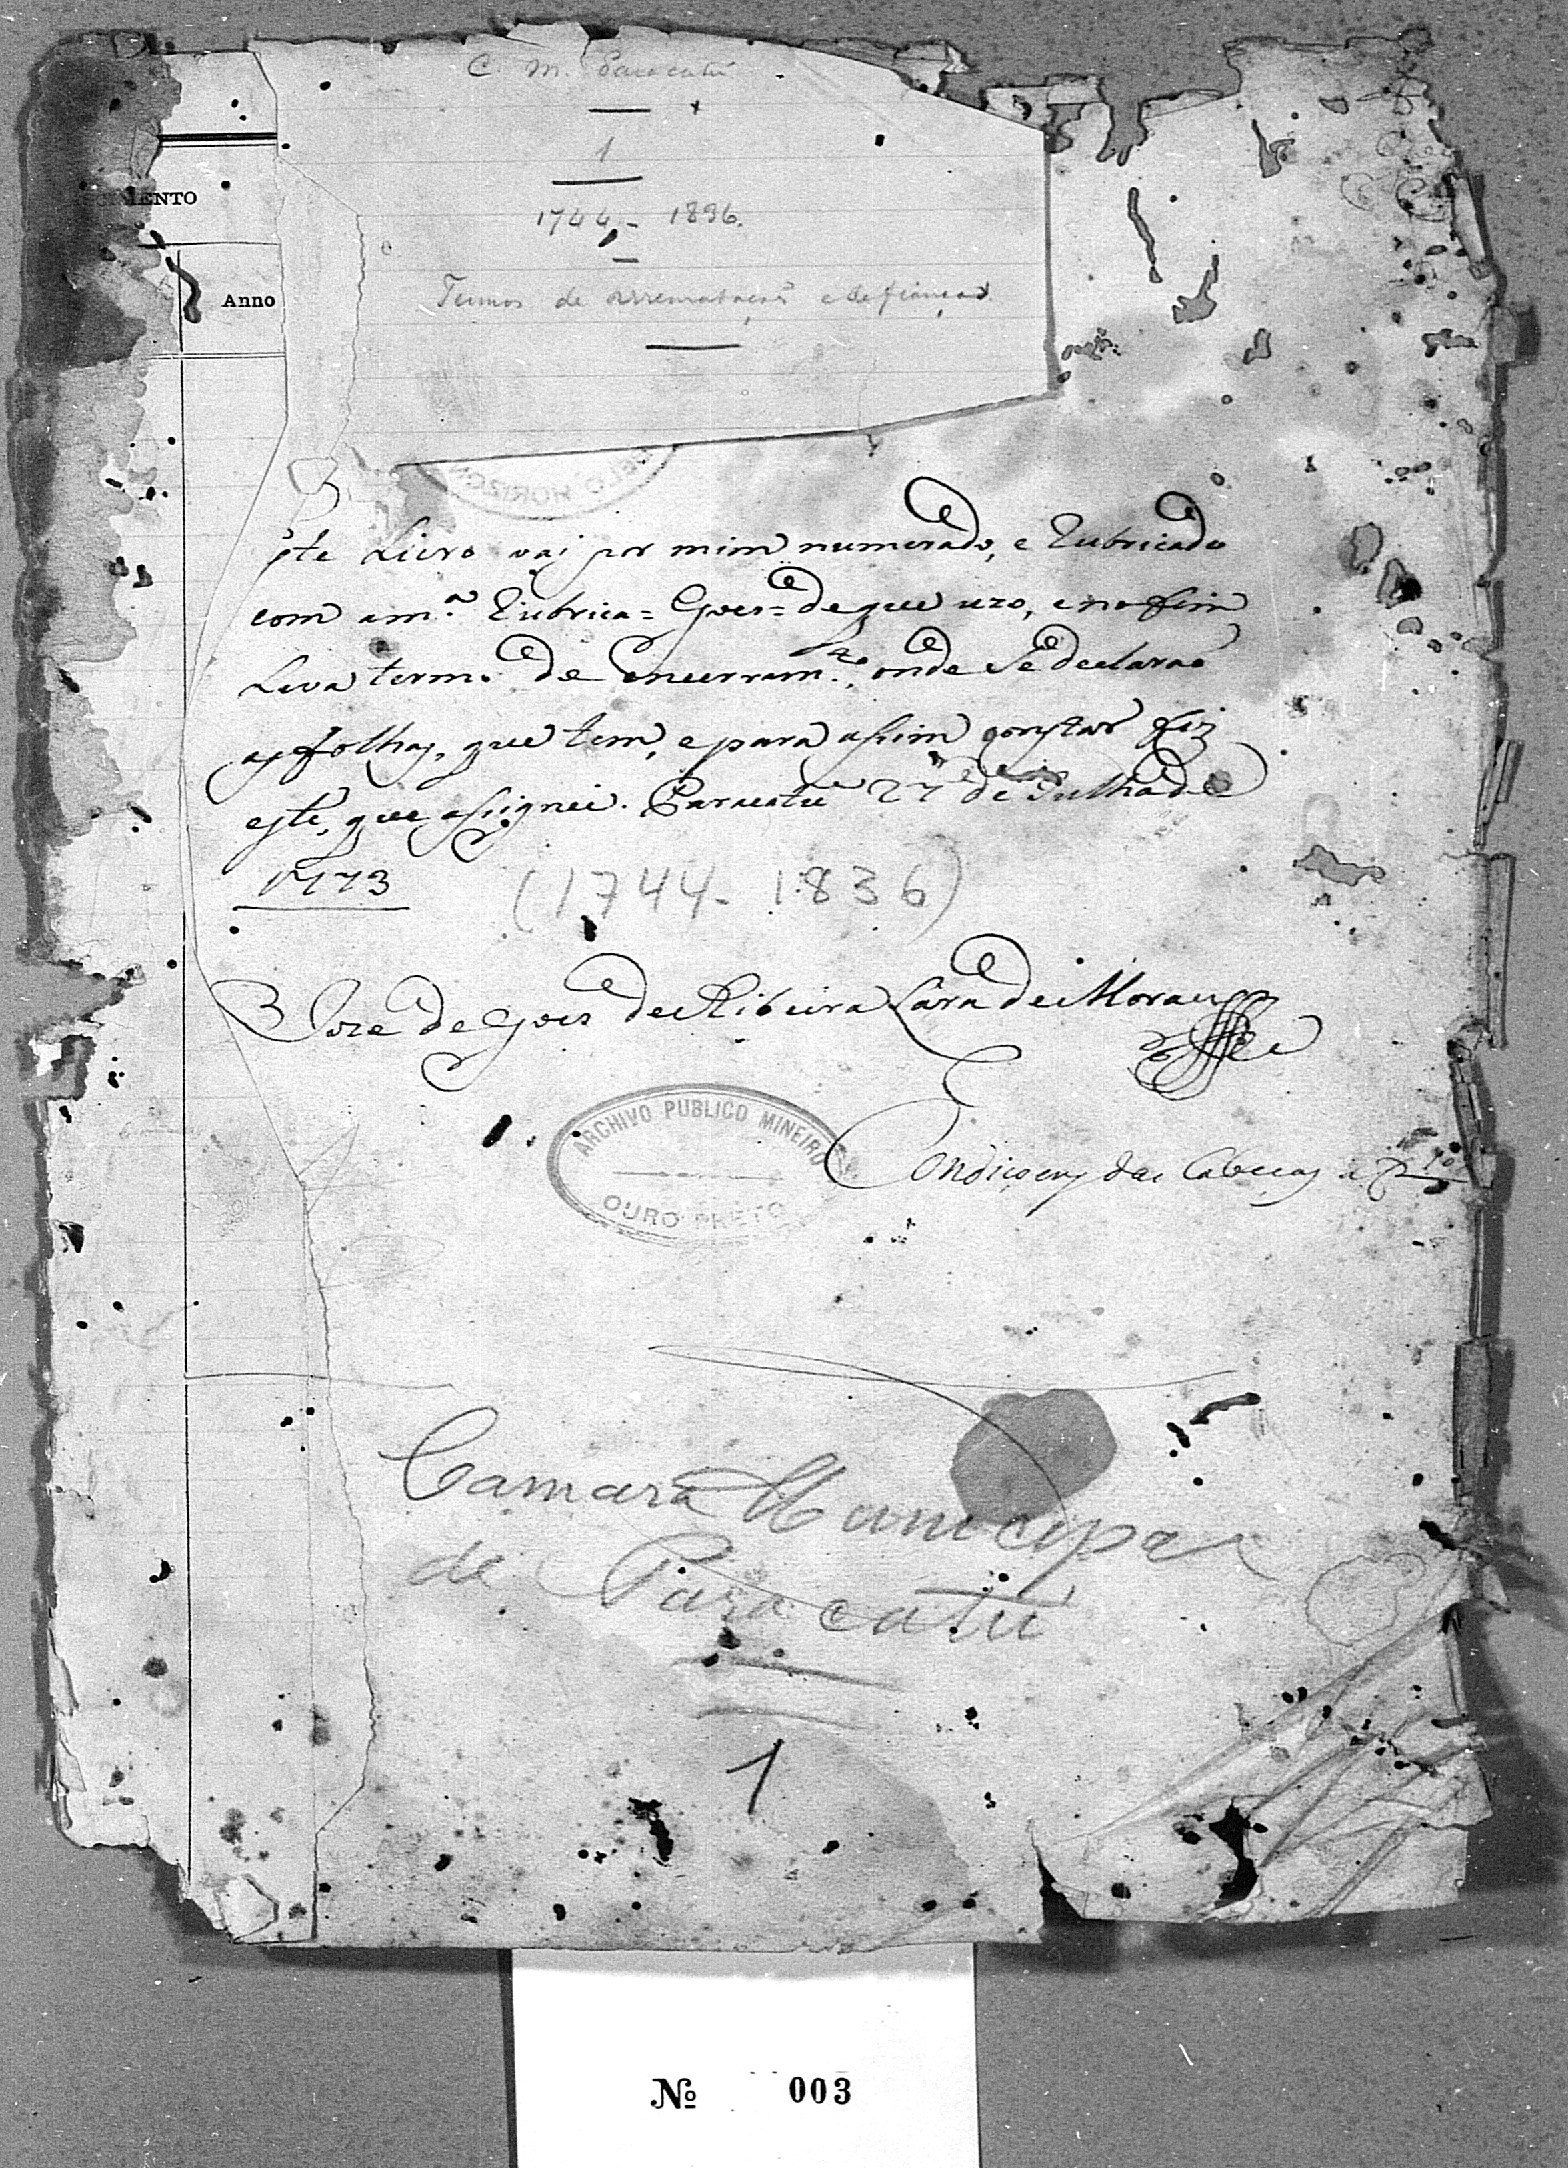 C. M. Paracatú
1
1744 - 1896.
Termos de arrematações e de fianças
MENTO
Anno
HORISON
ste Livro vaj por mim numerado, e Rubricado
com a m.ª Rubrica = Goes = de que uzo, e no fim
Leva termo de Encerram.to, onde Se declarão
as folhas, que tem, e para assim constar fiz
este, que assignei. Paracatu 27 de Julho de
1773
(1744 - 1836)
Joze de Goes de Ribeira Lara de Moraes
ARCHIVO PUBLICO MINEIRO
OURO PRETO
Condiçoens das Cabeças a
Camara Municipal
de Paracatú
1
№ 003